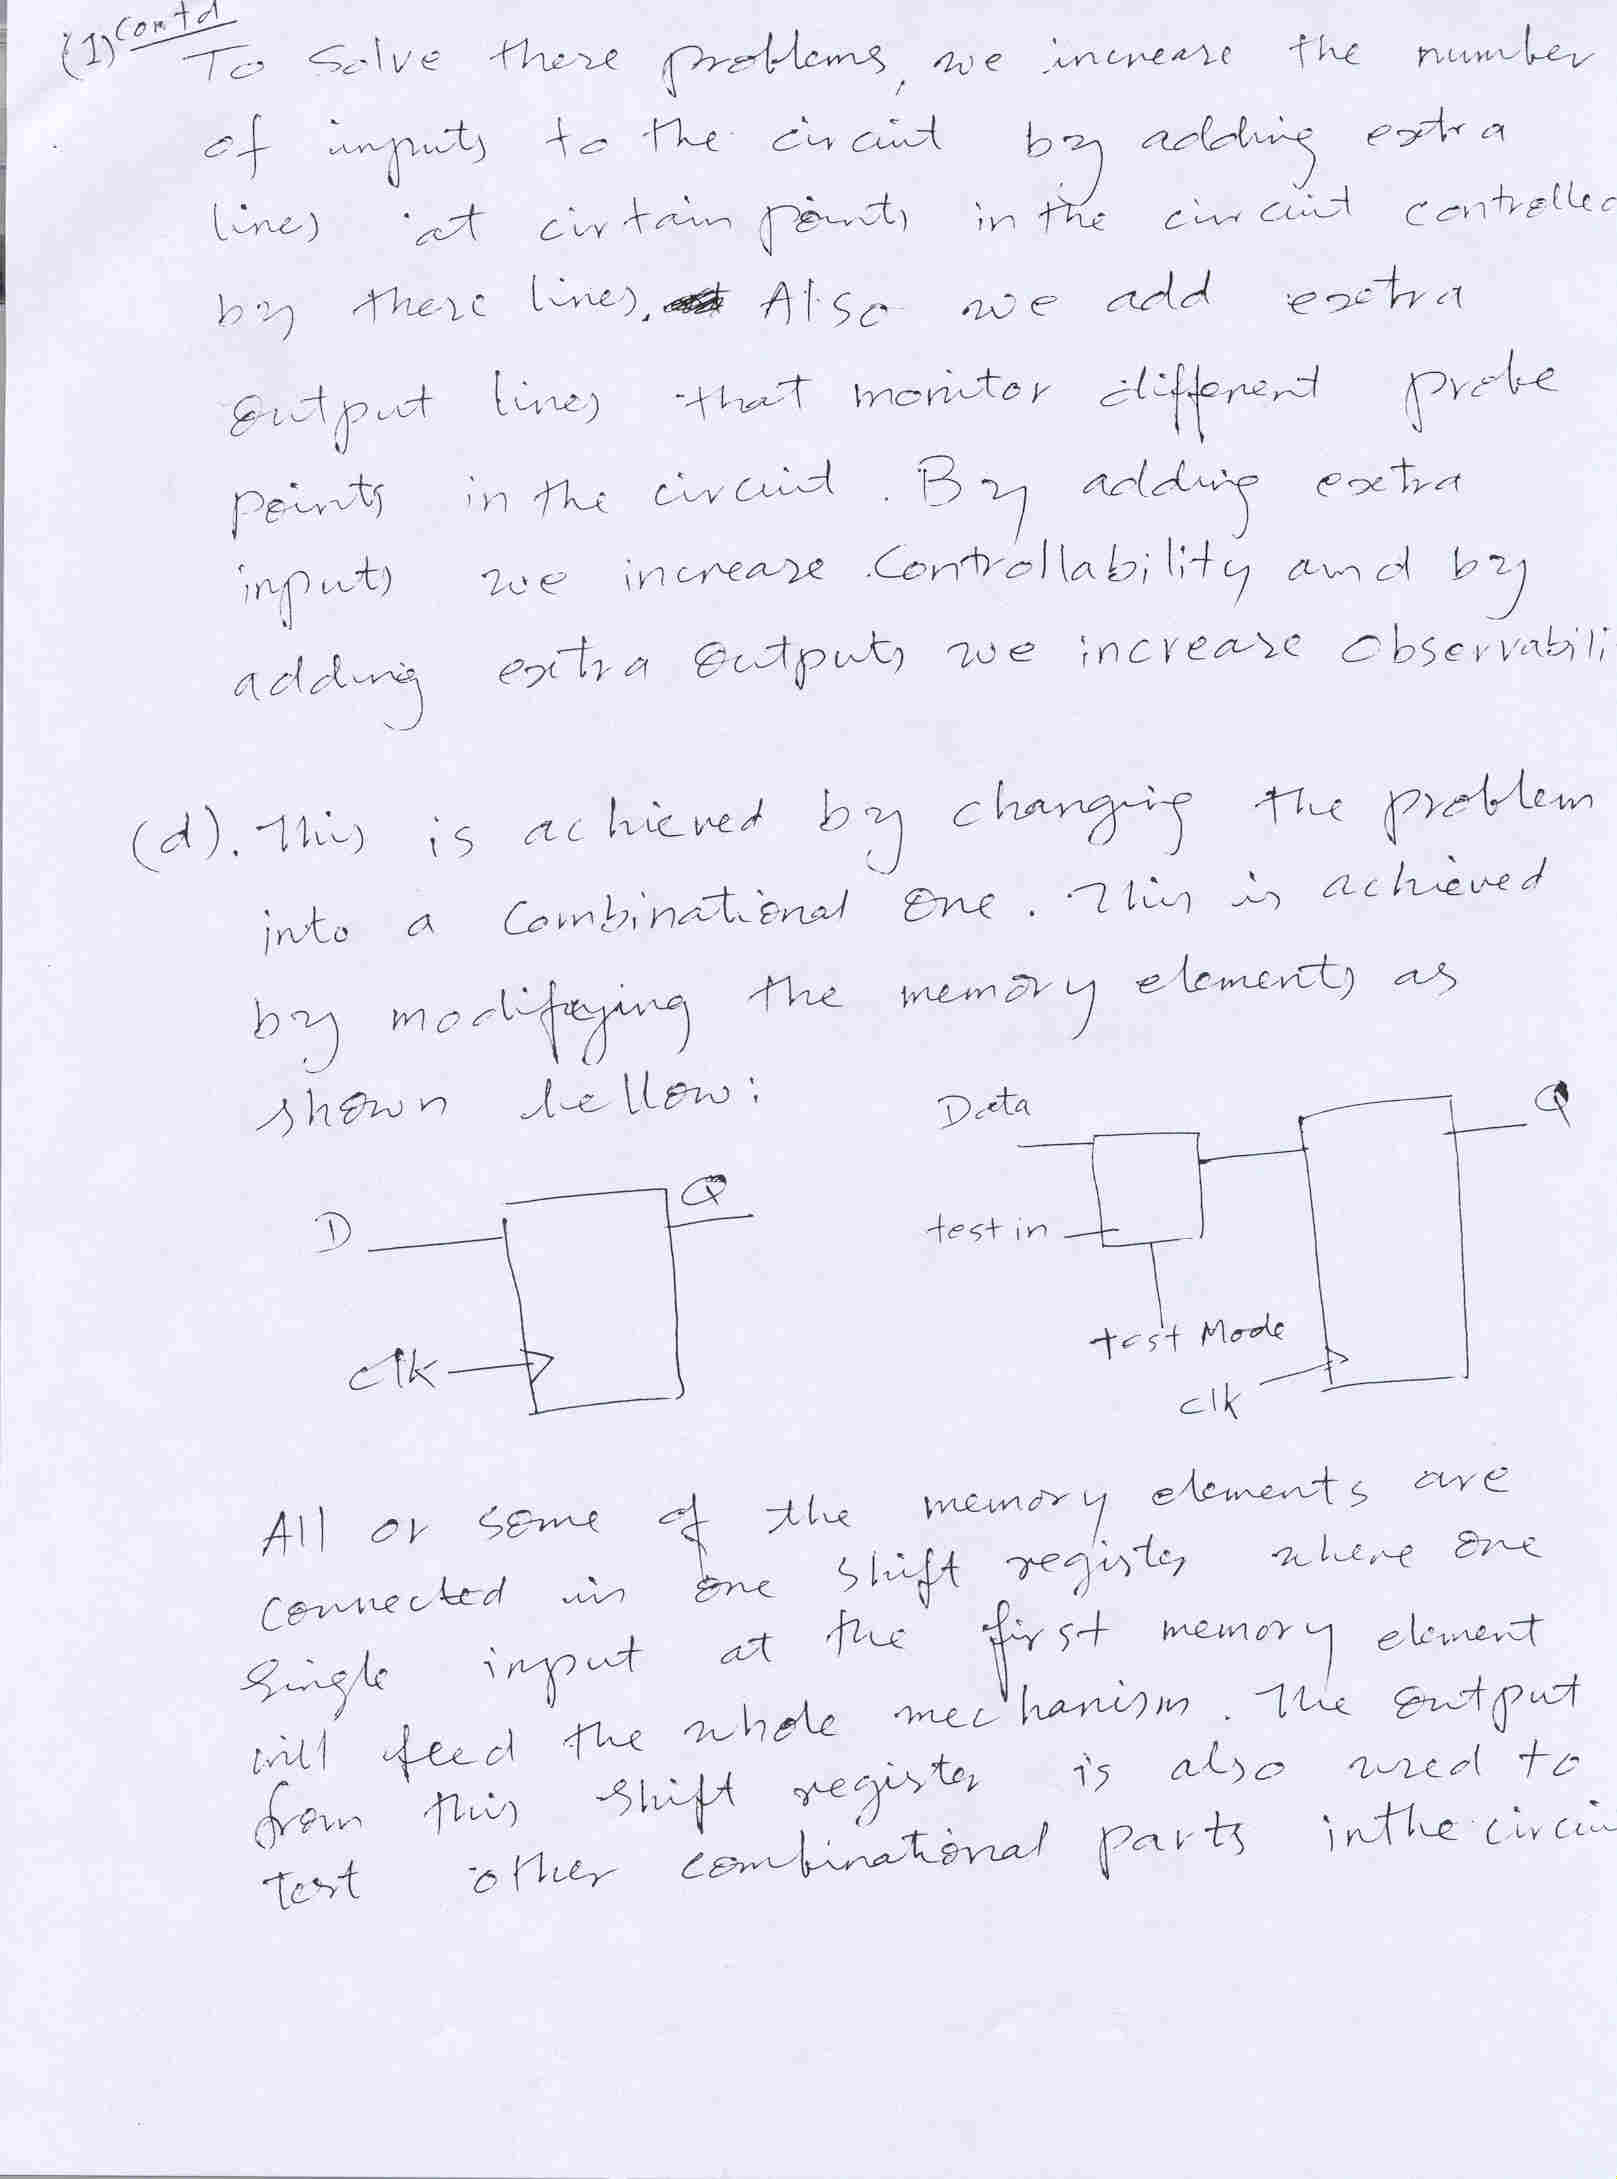 (I) Contd
To solve these problems, we increase the number
of inputs to the circuit by adding extra
lines at cirtain points in the circuit controlled
by these lines. Also we add extra
output lines that monitor different probe
points in the circuit. By adding extra
inputs we increase Controllability and by
adding extra outputs we increase observabili
(d). This is achieved by changing the problem
into a Combinational one. This is achieved
by modifying the memory elements as
shown bellow:
Data
Q
D
Q
test in
test Mode
clk
clk
All or some of the memory elements are
connected in one shift register where one
single input at the first memory element
will feed the whole mechanism. The output
from this shift register is also used to
test other combinational parts in the circui